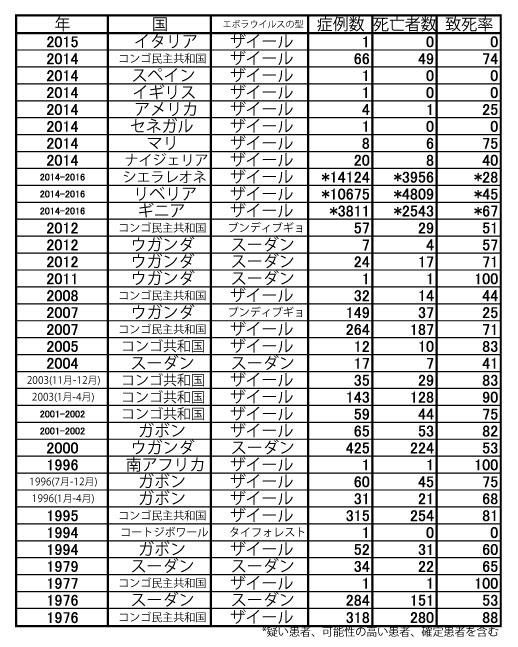 年 国 エボラウイルスの型 症例数 死亡者数 致死率
2015 イタリア ザイール 1 0 0
2014 コンゴ民主共和国 ザイール 66 49 74
2014 スペイン ザイール 1 0 0
2014 イギリス ザイール 1 0 0
2014 アメリカ ザイール 4 1 25
2014 セネガル ザイール 1 0 0
2014 マリ ザイール 8 6 75
2014 ナイジェリア ザイール 20 8 40
2014-2016 シエラレオネ ザイール *14124 *3956 *28
2014-2016 リベリア ザイール *10675 *4809 *45
2014-2016 ギニア ザイール *3811 *2543 *67
2012 コンゴ民主共和国 ブンディブギョ 57 29 51
2012 ウガンダ スーダン 7 4 57
2012 ウガンダ スーダン 24 17 71
2011 ウガンダ スーダン 1 1 100
2008 コンゴ民主共和国 ザイール 32 14 44
2007 ウガンダ ブンディブギョ 149 37 25
2007 コンゴ民主共和国 ザイール 264 187 71
2005 コンゴ共和国 ザイール 12 10 83
2004 スーダン スーダン 17 7 41
2003(11月-12月) コンゴ共和国 ザイール 35 29 83
2003(1月-4月) コンゴ共和国 ザイール 143 128 90
2001-2002 コンゴ共和国 ザイール 59 44 75
2001-2002 ガボン ザイール 65 53 82
2000 ウガンダ スーダン 425 224 53
1996 南アフリカ ザイール 1 1 100
1996(7月-12月) ガボン ザイール 60 45 75
1996(1月-4月) ガボン ザイール 31 21 68
1995 コンゴ民主共和国 ザイール 315 254 81
1994 コートジボワール タイフォレスト 1 0 0
1994 ガボン ザイール 52 31 60
1979 スーダン スーダン 34 22 65
1977 コンゴ民主共和国 ザイール 1 1 100
1976 スーダン スーダン 284 151 53
1976 コンゴ民主共和国 ザイール 318 280 88
*疑い患者、可能性の高い患者、確定患者を含む